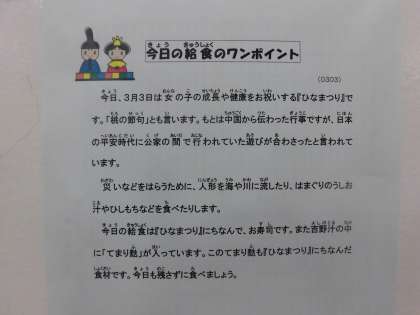 今日の給食のワンポイント
(0303)
今日、3月3日は女の子の成長や健康をお祝いする『ひなまつり』で
す。「桃の節句」とも言います。もとは中国から伝わった行事ですが、日本
の平安時代に公家の間で行われていた遊びが合わさったと言われて
います。
災いなどをはらうために、人形を海や川に流したり、はまぐりのうしお
汁やひしもちなどを食べたりします。
今日の給食は『ひなまつり』にちなんで、お寿司です。また吉野汁の中
に「てまり麩」が入っています。このてまり麩も『ひなまつり』にちなんだ
食材です。今日も残さずに食べましょう。